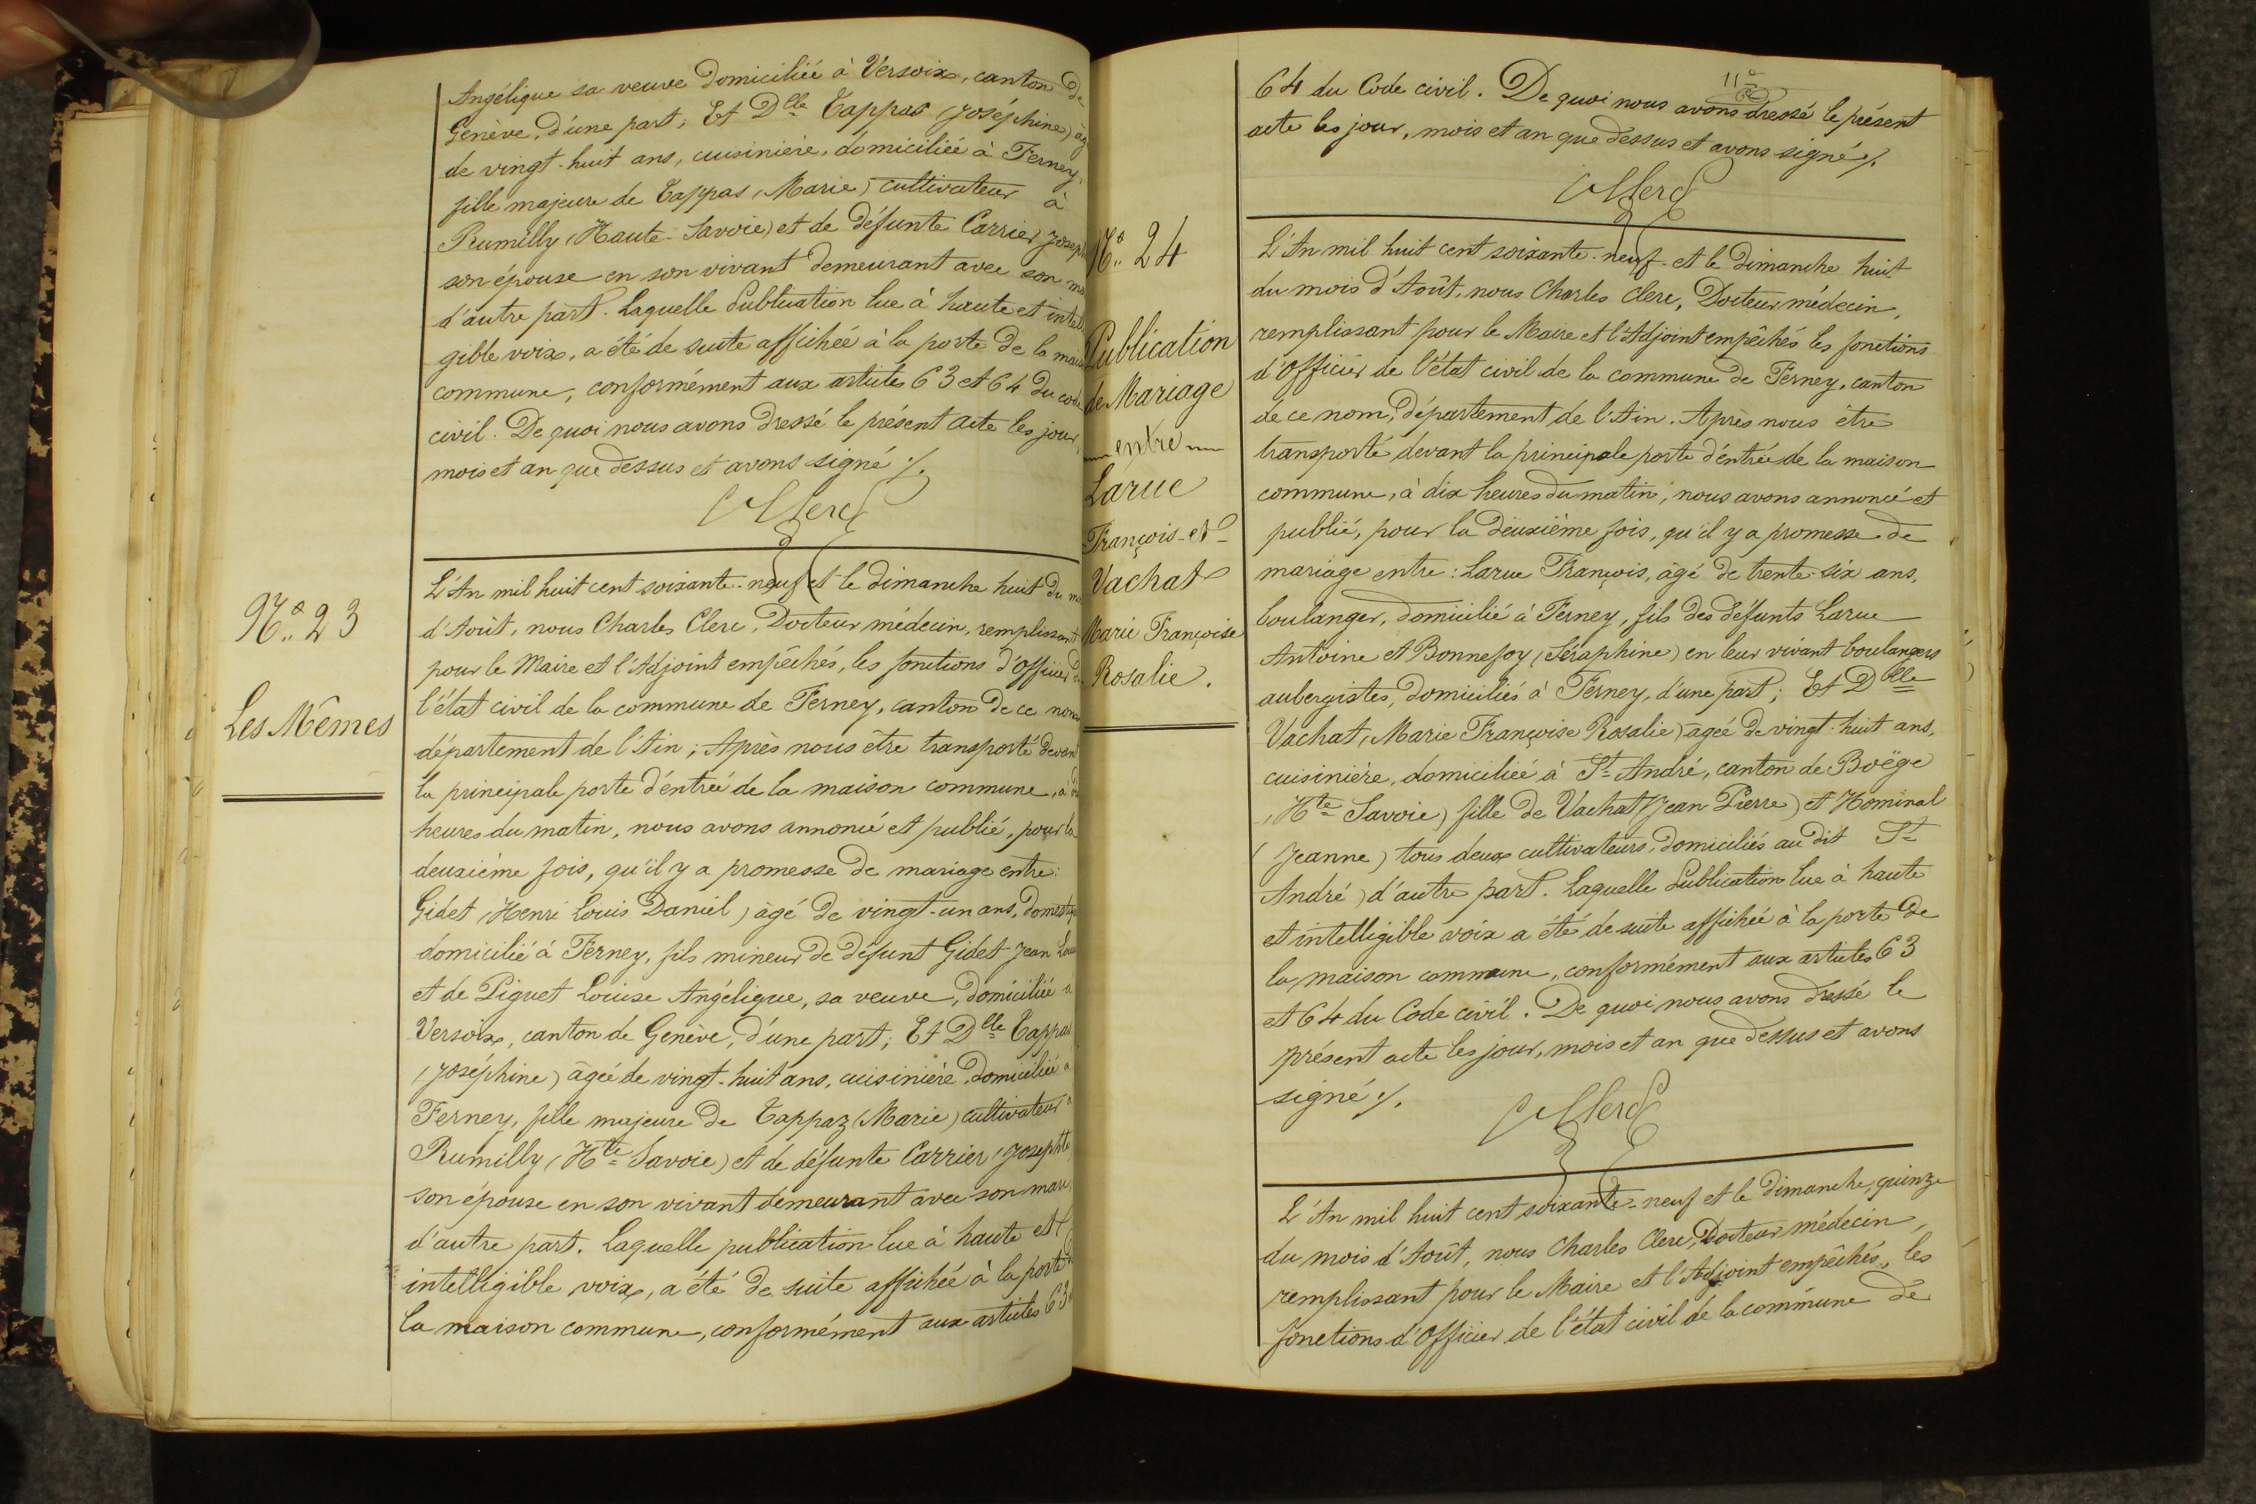 Angélique sa veuve domiciliée à Versoix, canton de
Genève, d'une part; Et Dlle Tappas (Joséphine) âg
de vingt-huit ans, cuisinière, domiciliée à Ferney,
fille majeure de Tappas (Marie) cultivateur à
Rumilly (Haute-Savoie) et de défunte Carrier Joseph
son épouse en son vivant demeurant avec son ma
d'autre part. Laquelle Publication lue à haute et intel
gible voix, a été de suite affichée à la porte de la mais
commune, conformément aux articles 63 et 64 du code
civil. De quoi nous avons dressé le présent acte les jour,
mois et an que dessus et avons signé ./.
Clerc
No. 23
Les Mêmes
L'An mil huit cent soixante-neuf et le dimanche huit du m
d'Août, nous Charles Clerc, Docteur médecin, remplissant
pour le Maire et l'Adjoint empêchés, les fonctions d'Officier d
l'état civil de la commune de Ferney, canton de ce nom
département de l'Ain; Après nous être transporté devant
la principale porte d'éntrée de la maison commune, à di
heures du matin, nous avons annoncé et publié, pour la
deuxième fois, qu'il y a promesse de mariage entre:
Gidet (Henri Louis Daniel) âgé de vingt-un ans, domestiq
domicilié à Ferney, fils mineur de défunt Gidet Jean Lou
et de Piguet Louise Angélique, sa veuve, domiciliée à
Versoix, canton de Genève, d'une part; Et Dlle Tappas
(Joséphine) âgée de vingt-huit ans, cuisinière domiciliée à
Ferney, fille majeure de Tappaz (Marie) cultivateur à
Rumilly (Hte Savoie) et de défunte Carrier (Josephte
son épouse en son vivant demeurant avec son mari,
d'autre part. Laquelle publication lue à haute et
intelligible voix, a été de suite affichée à la porte
la maison commune, conformément aux articles 63
11e
64 du Code civil. De quoi nous avons dressé le présent
acte les jour, mois et an que dessus et avons signé ./.
Clerc
No. 24
Publication
de Mariage
entre
Larue
François et
Vachat
Marie Françoise
Rosalie.
L'An mil huit cent soixante-neuf et le dimanche huit
du mois d'Août, nous Charles Clerc, Docteur médecin,
remplissant pour le Maire et l'Adjoint empêchés les fonctions
d'Officier de l'état civil de la commune de Ferney, canton
de ce nom, département de l'Ain. Après nous être
transporté devant la principale porte d'éntrée de la maison
commune, à dix heures du matin; nous avons annoncé et
publié, pour la deuxième fois, qu'il y a promesse de
mariage entre: Larue François, âgé de trente-six ans,
boulanger, domicilié à Ferney, fils des défunts Larue
Antoine et Bonnefoy (Séraphine) en leur vivant boulangers
aubergistes, domiciliés à Ferney, d'une part; Et Dlle
Vachat (Marie Françoise Rosalie) âgée de vingt-huit ans,
cuisinière, domiciliée à St André, canton de Boëge
(Hte Savoie) fille de Vachat (Jean Pierre) et Hominal
(Jeanne) tous deux cultivateurs, domiciliés au dit St
André) d'autre part. Laquelle Publication lue à haute
et intelligible voix a été de suite affichée à la porte de
la maison commune, conformément aux articles 63
et 64 du Code civil. De quoi nous avons dressé le
présent acte les jour, mois et an que dessus et avons
signé ./.
Clerc
L'An mil huit cent soixante-neuf et le dimanche quinze
du mois d'Août, nous Charles Clerc, Docteur médecin,
remplissant pour le Maire et l'Adjoint empêchés, les
fonctions d'Officier de l'état civil de la commune de